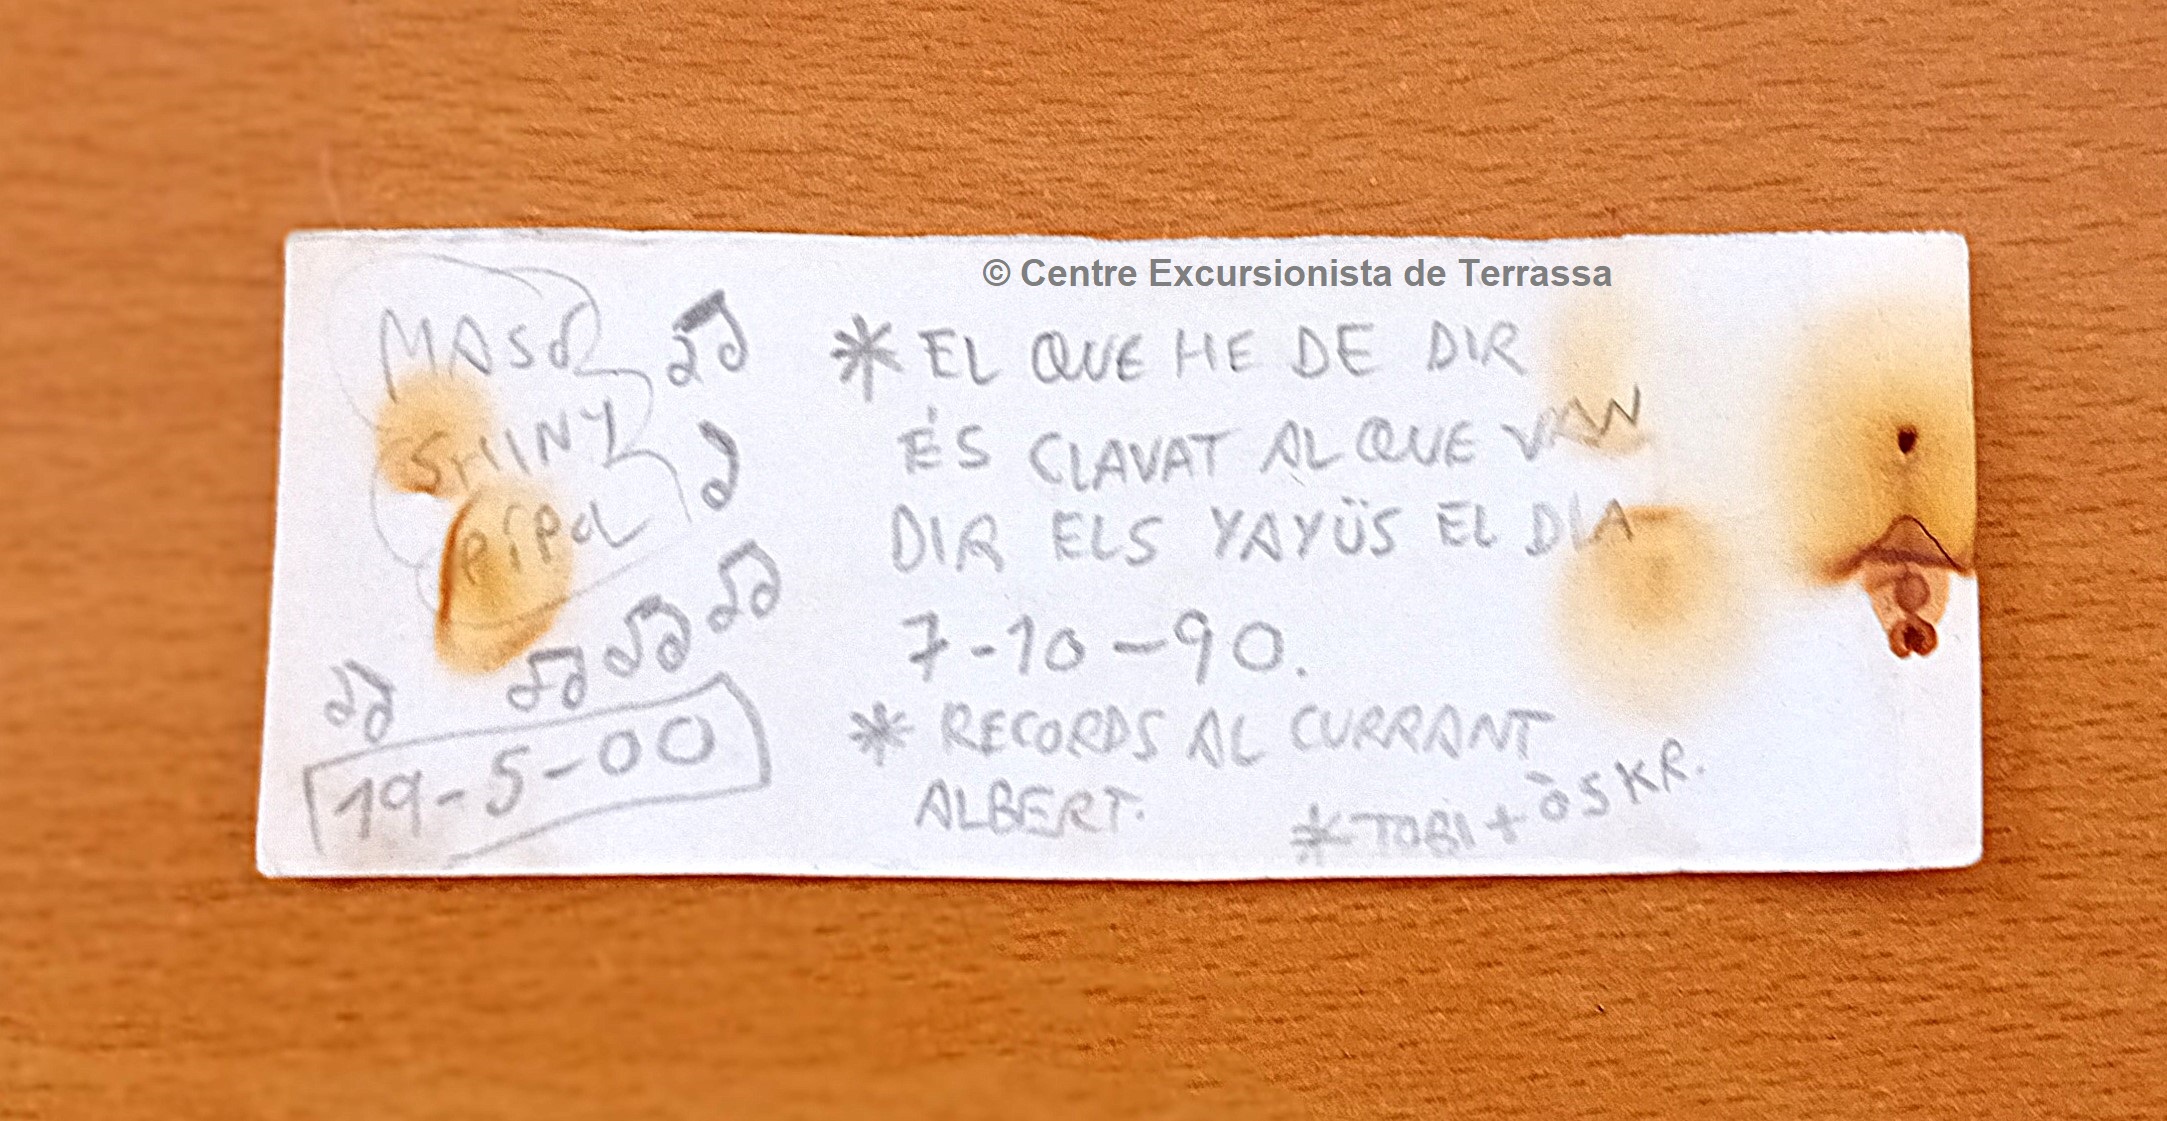 © Centre Excursionista de Terrassa
SHINY
PiPOL
19-5-00
* EL QUE HE DE DIR
ÉS CLAVAT AL QUE VAN
DIR ELS YAYÜS EL DIA
7-10-90.
* RECORDS AL CURRANT
ALBERT.
* TOBI + ÒSKR.